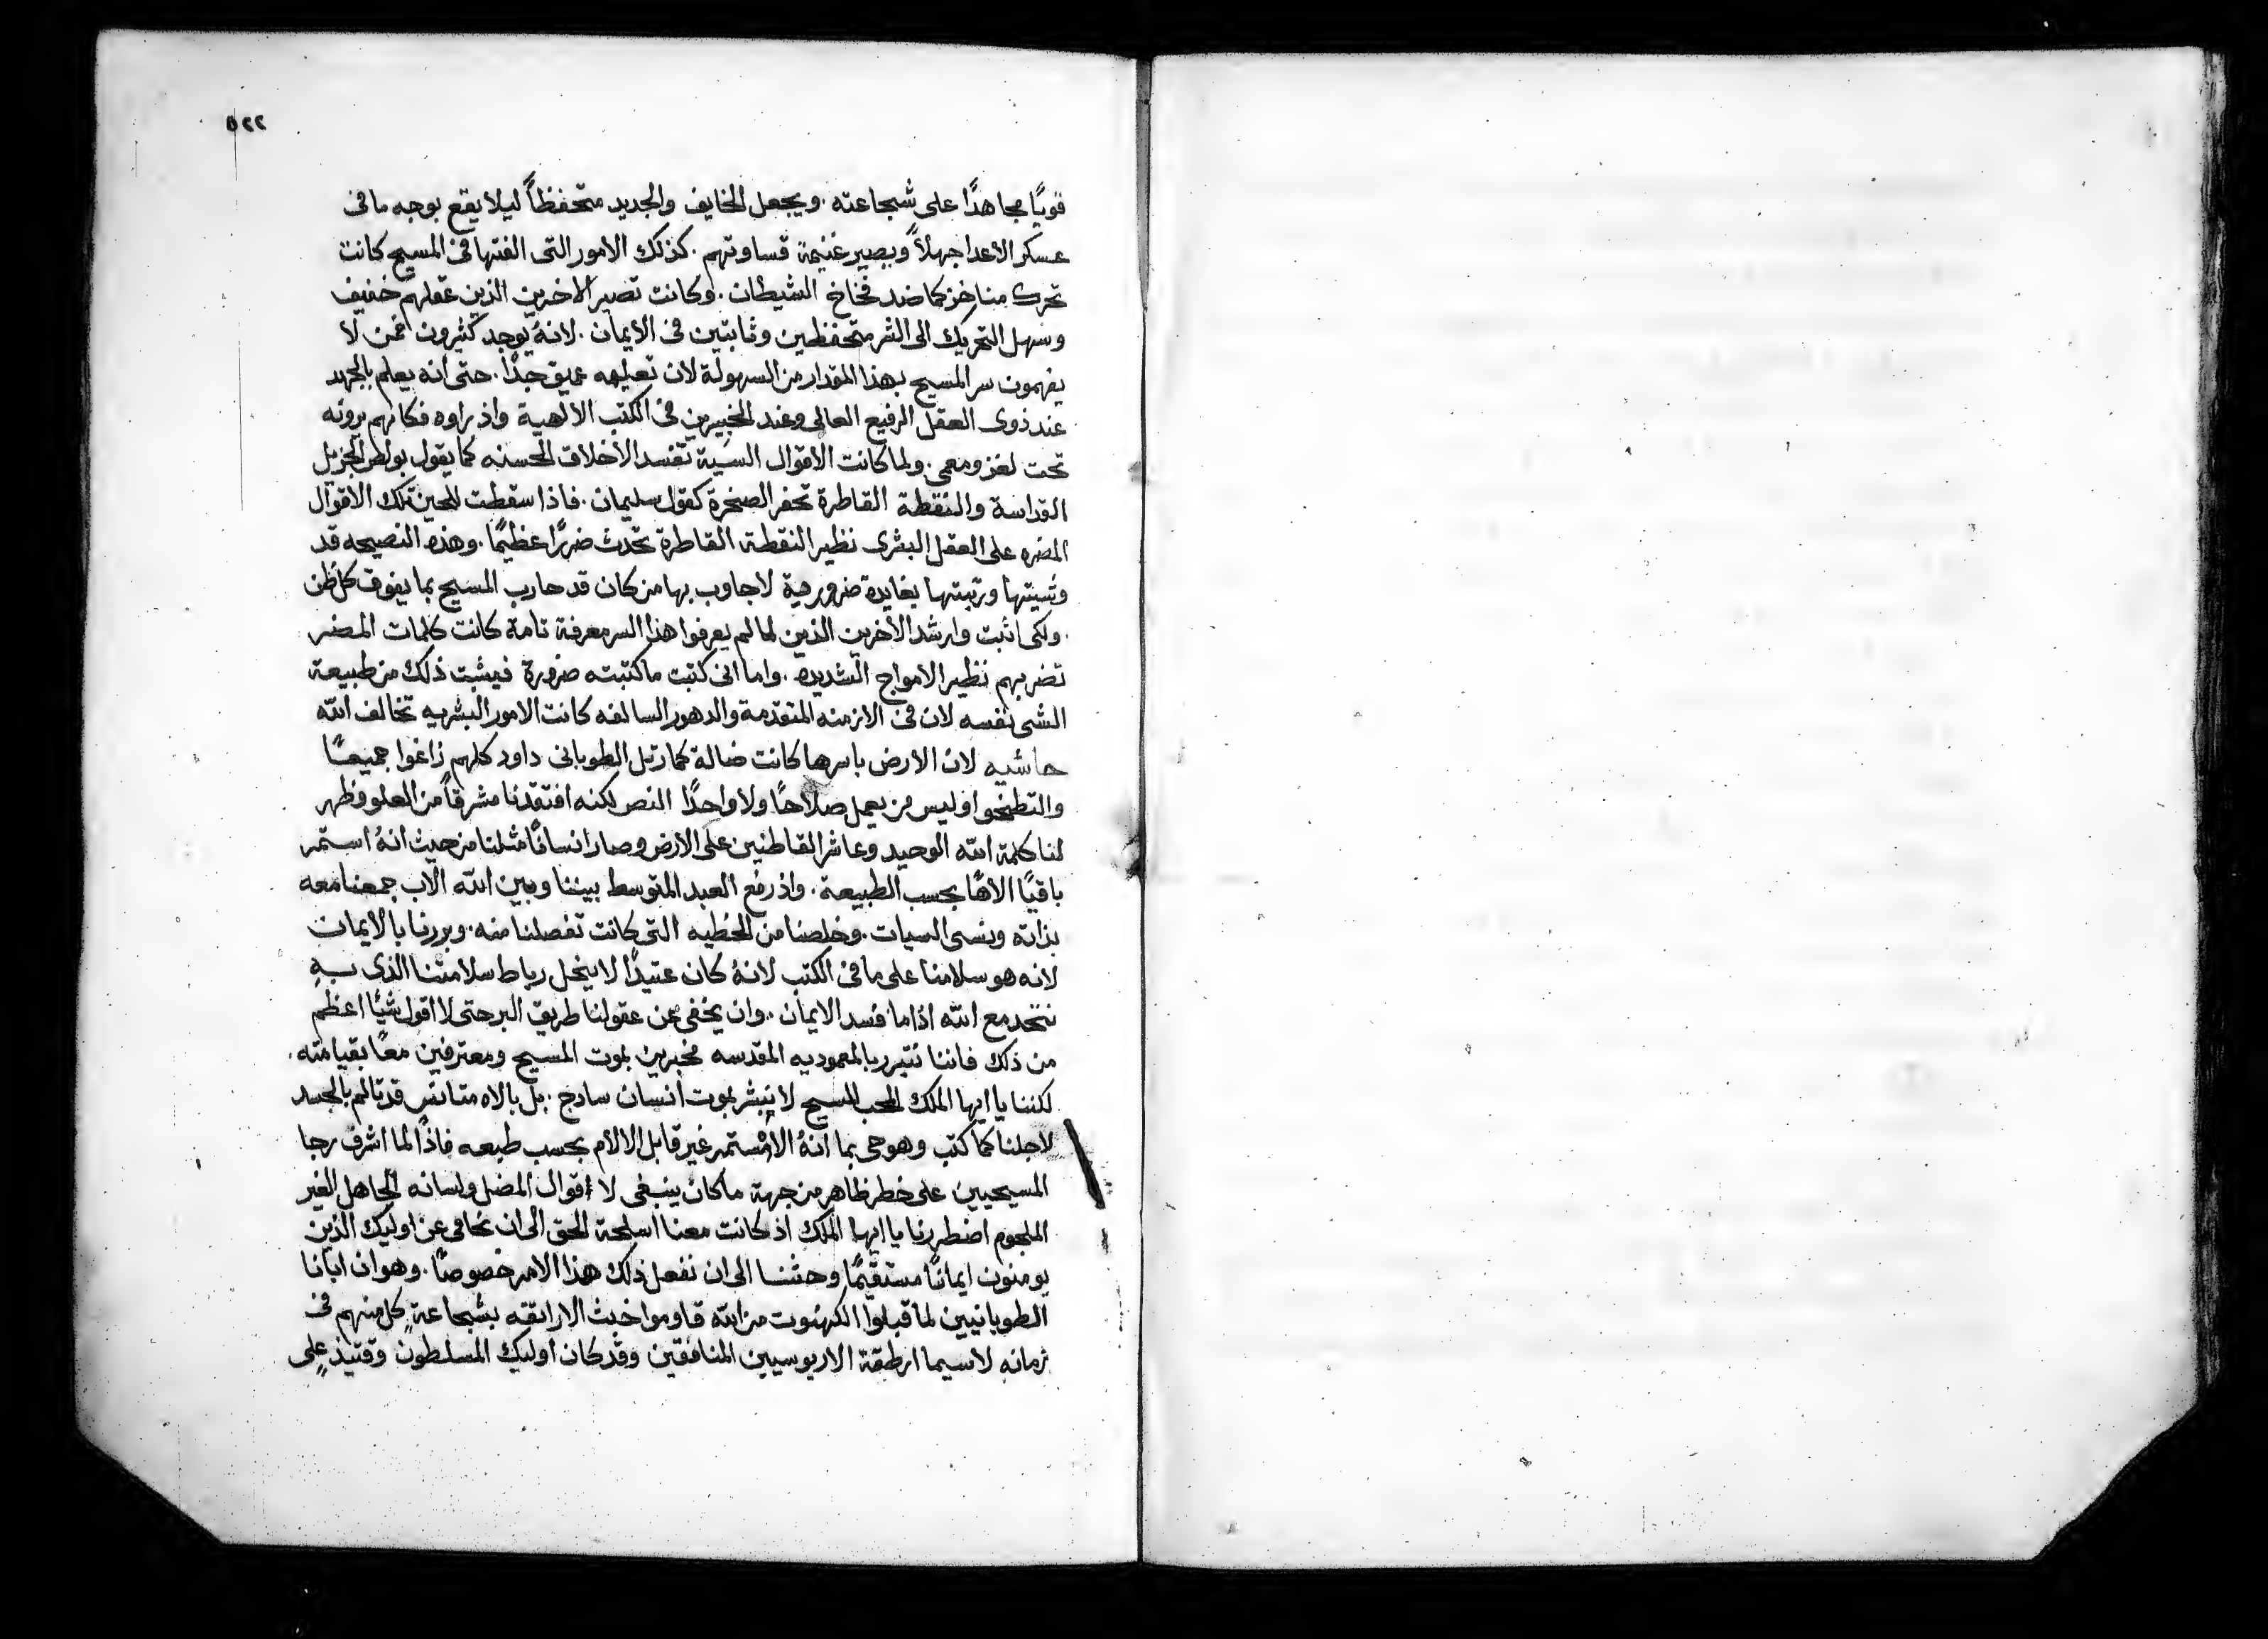 ٥٢٢
قويًا مجاهدًا على شجاعته . ويجعل الخايف والجديد متحفظاً ليلا يقع بوجه ما في
عسكر الاعدا جهلاً ويصير غنيمة قساوتهم . كذلك الامور التى الفتها في المسيح كانت
تحرك مناخزكما ضد فخاخ الشيطان . وكانت تصير الاخرين الذين عقلهم خفيف
وسهل التحريك الى الشر متحفظين وثابتين في الايمان . لانهُ يوجد كثيرون ممن لا
يفهمون سر المسيح بهذا المقدار من السهولة لان تعليمه عميق جدًا . حتى انه يعلم بالجهد
عند ذوى العقل الرفيع العالى وعند الخبيرين في الكتب الالهية واذ راوه فكانهم يرونه
تحت لغز ومعمى . ولما كانت الاقوال السية تفسد الاخلاق الحسنه كما يقول بولص الجزيل
القداسة والنقطة القاطرة تحفر الصخرة كقول سليمان . فاذا سقطت للحين تلك الاقوال
المضره على العقل البشرى نظير النقطة القاطرة تحدث ضررًا عظيمًا . وهذه النصيحه قد
وشيتها ورتبتها بفايدة ضرورية لاجاوب بها من كان قد حارب المسيح بما يفوق كل ظن
. ولكى اثبت وارشد الاخرين الذين لما لم يعرفوا هذا السر معرفة تامة كانت كلمات المضر
تضربهم نظير الامواج الشديده . واما انى كتبت ما كتبته ضرورة فيثبت ذلك من طبيعة
الشى نفسه لان في الازمنه المتقدمة والدهور السالفه كانت الامور البشريه تخالف الله
حاشيه لان الارض باسرها كانت ضالة كما رتل الطوبانى داود كلهم زاغوا جميعًا
والتطخوا وليس من يعمل صلاحًا ولا واحدًا النص لكنه افتقدنا مشرقاً من العلو وظهر
لنا كلمة الله الوحيد وعاشر القاطنين على الارض وصار انسانًا مثلنا من حيث انهُ استمر
باقيًا الاهًا بحسب الطبيعة . واذ رفع العبد المتوسط بيننا وبين الله الاب جمعنا معه
بذاته ونسى السيات . وخلصنا من الخطيه التى كانت تفصلنا منه . وبررنا بالايمان
لانه هو سلامنا على ما في الكتب لانهُ كان عتيدًا لا ينحل رباط سلامتنا الذى بـه
نتحد مع الله اذا ما فسد الايمان . وان يخفى عن عقولنا طريق البر حتى لا اقول شيًا اعظم
من ذلك فاننا نتبرر بالمعموديه المقدسه مخبرين بموت المسيح ومعترفين معًا بقيامته .
لكننا يا ايها الملك المحب المسيح لا نبشر بموت انسان سادج . بل بالاه متانس قد تالم بالجسد
لاجلنا كما كتب وهو حى بما انهُ الاه مستمر غير قابل الالام بحسب طبعه فاذًا لما اشرف رجا
المسيحيين على خطر ظاهر من جهة ما كان ينبغى لا اقوال المضل ولسانه الجاهل الغير
الملجوم اضطررنا يا ايها الملك اذ كانت معنا اسلحة الحق الى ان نحامى عن اوليك الذين
يومنون ايمانًا مستقيمًا وحثنا الى ان نفعل ذلك هذا الامر خصوصًا . وهو ان ابانا
الطوبانيين لما قبلوا الكهنوت من الله قاوموا خبث الاراتقه بشجاعة كل منهم في
زمانه لاسيما ارطقة الاريوسيين المنافقين وقد كان اوليك المسلطون وقتيذ على